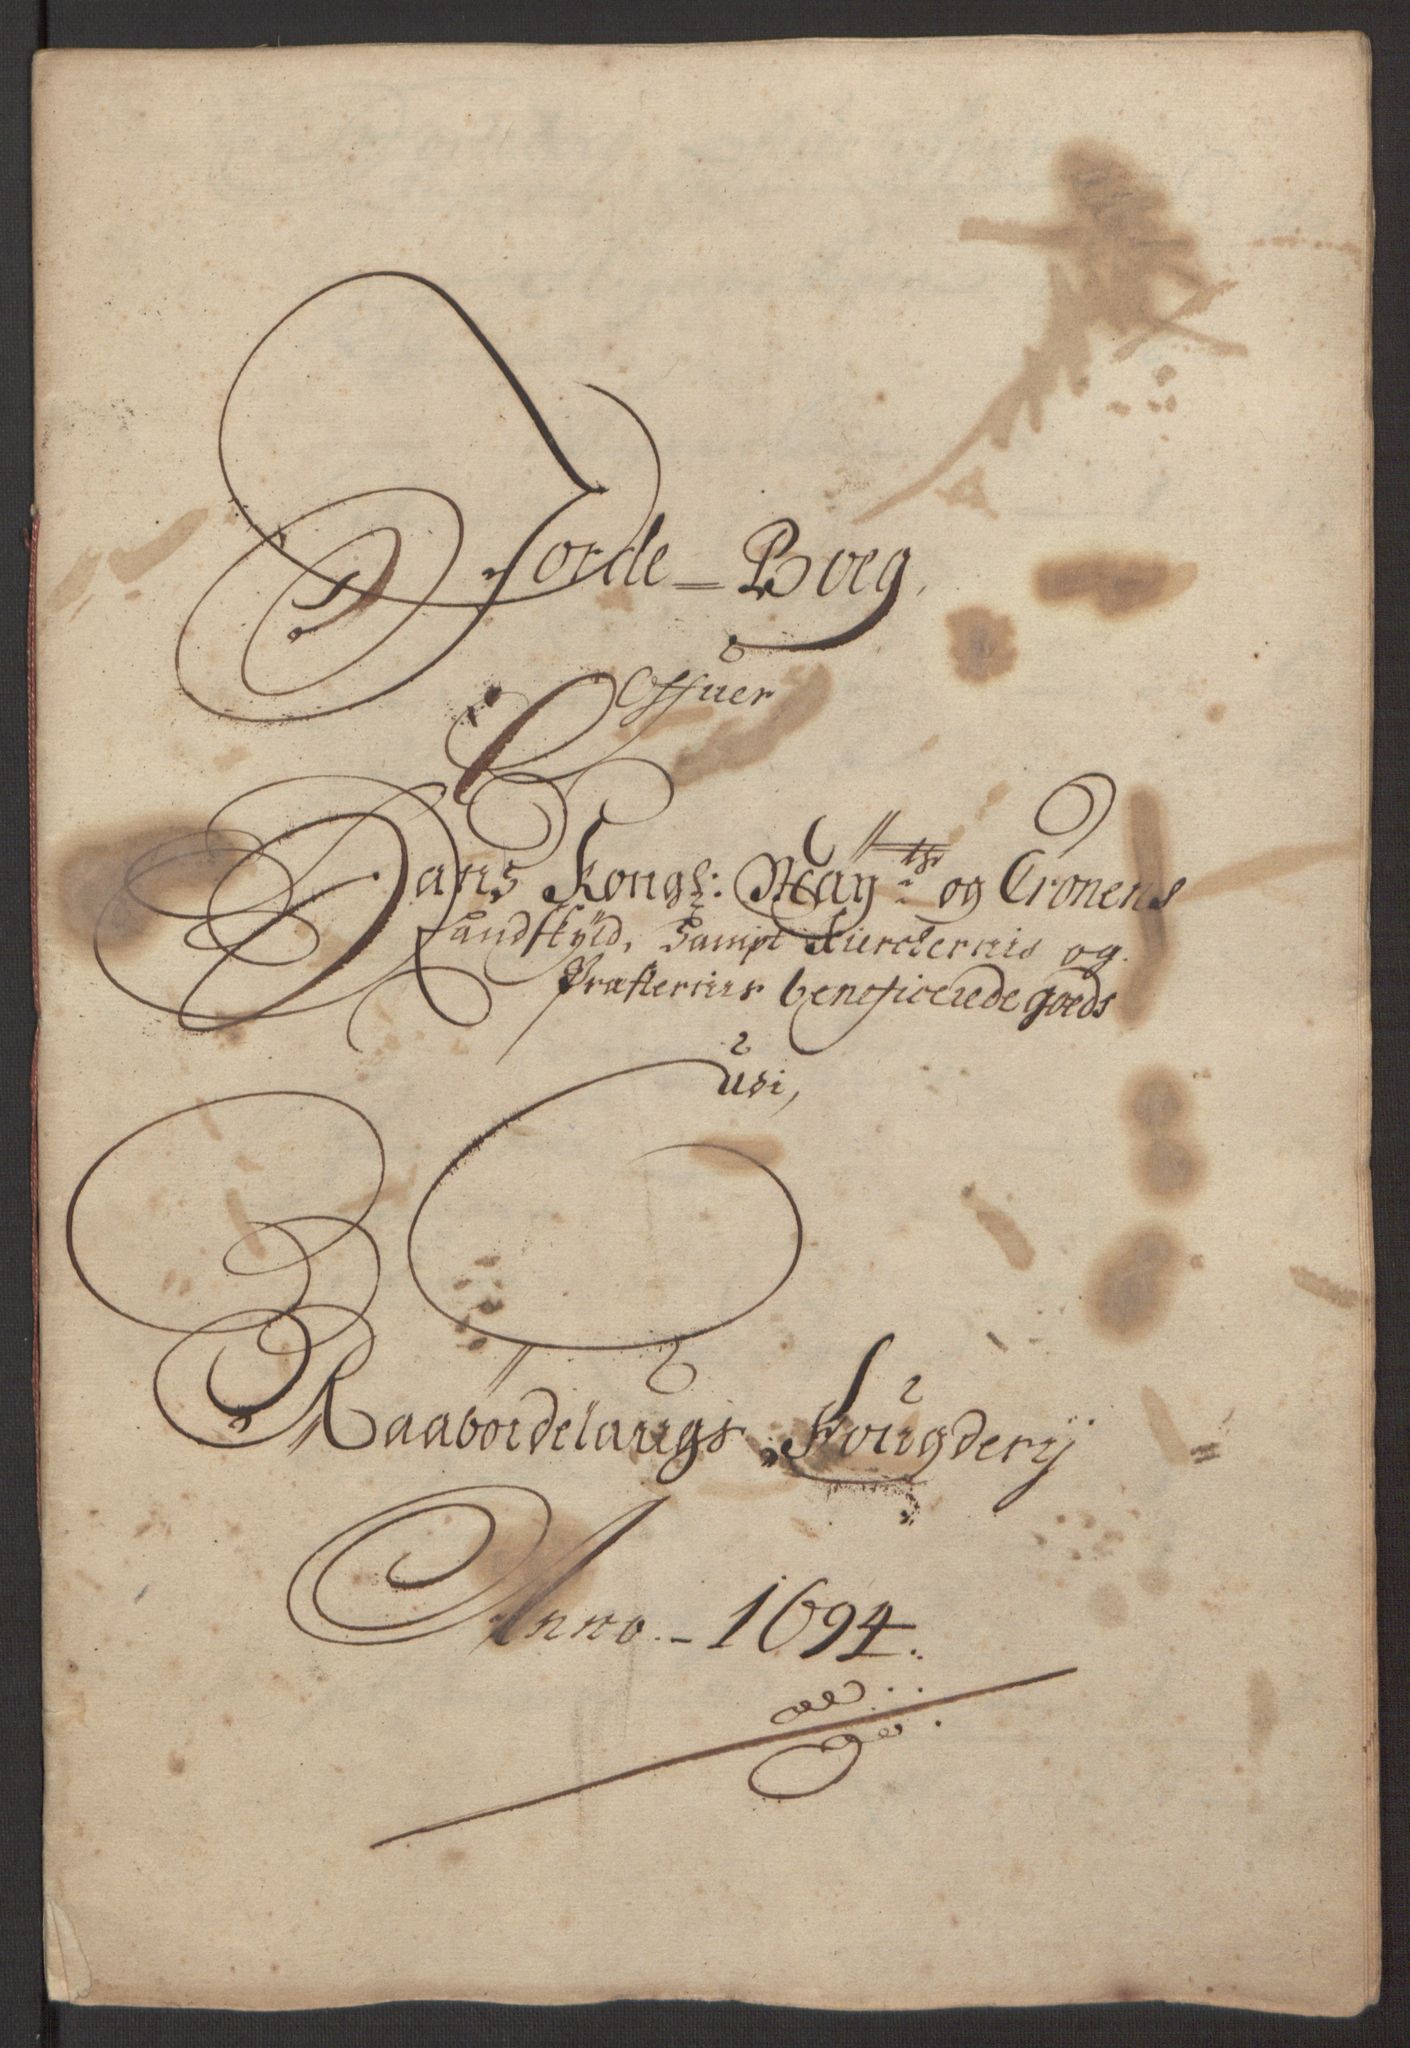 Jorde-Boeg,
Offuer
Hans Kongl: Maÿ:ts og Cronens
Landskÿld, Sampt Kierchernis og
Præsternis beneficerede goeds
udi,
Raabÿdelaugs Fougderij
Anno - 1694.